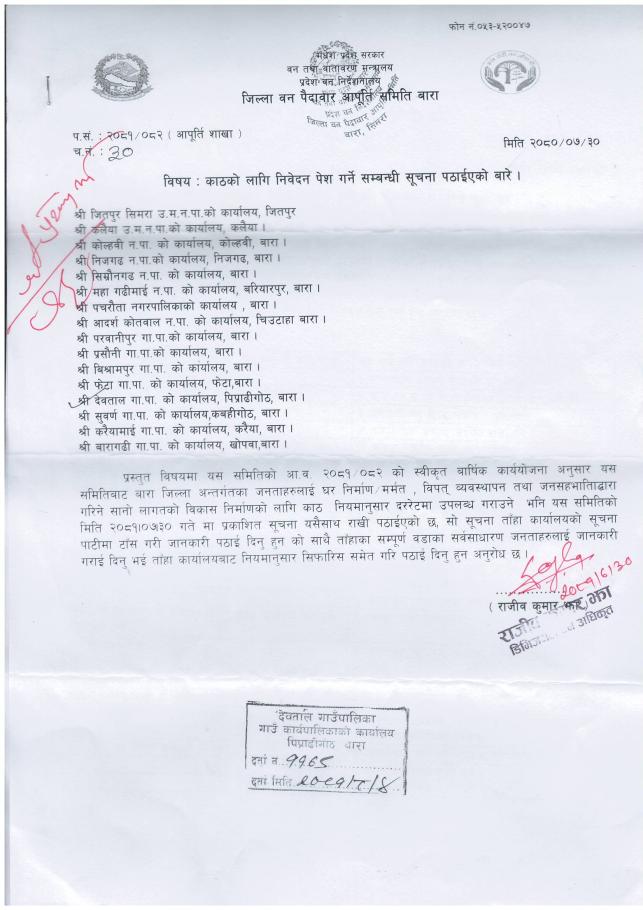 फोन नं.०५३-५२००४७
मधेश प्रदेश सरकार
वन तथा वातावरण मन्त्रालय
प्रदेश वन निर्देशनालय
जिल्ला वन पैदावार आपूर्ति समिति बारा
प.सं. : २०८१/०८२ ( आपूर्ति शाखा )
च.नं. : ३०
मिति २०८०/०७/३०
विषय : काठको लागि निवेदन पेश गर्ने सम्बन्धी सूचना पठाईएको बारे ।
श्री जितपुर सिमरा उ.म.न.पा.को कार्यालय, जितपुर
श्री कलैया उ.म.न.पा.को कार्यालय, कलैया ।
श्री कोल्हवी न.पा. को कार्यालय, कोल्हवी, बारा ।
श्री निजगढ न.पा.को कार्यालय, निजगढ, बारा ।
श्री सिम्रौनगढ न.पा. को कार्यालय, बारा ।
श्री महा गढीमाई न.पा. को कार्यालय, बरियारपुर, बारा ।
श्री पचरौता नगरपालिकाको कार्यालय , बारा ।
श्री आदर्श कोतवाल न.पा. को कार्यालय, चिउटाहा बारा ।
श्री परवानीपुर गा.पा.को कार्यालय, बारा ।
श्री प्रसौनी गा.पा.को कार्यालय, बारा ।
श्री बिश्रामपुर गा.पा. को कार्यालय, बारा ।
श्री फेटा गा.पा. को कार्यालय, फेटा,बारा ।
श्री देवताल गा.पा. को कार्यालय, पिप्राढीगोठ, बारा ।
श्री सुवर्ण गा.पा. को कार्यालय,कबहीगोठ, बारा ।
श्री करैयामाई गा.पा. को कार्यालय, करैया, बारा ।
श्री बारागढी गा.पा. को कार्यालय, खोपवा,बारा ।
प्रस्तुत विषयमा यस समितिको आ.व. २०८१/०८२ को स्वीकृत बार्षिक कार्ययोजना अनुसार यस
समितिबाट बारा जिल्ला अन्तर्गतका जनताहरुलाई घर निर्माण/मर्मत , विपत् व्यवस्थापन तथा जनसहभागिताद्वारा
गरिने सानो लागतको विकास निर्माणको लागि काठ नियमानुसार दररेटमा उपलब्ध गराउने भनि यस समितिको
मिति २०८१।०७।३० गते मा प्रकाशित सूचना यसैसाथ राखी पठाईएको छ, सो सूचना ताँहा कार्यालयको सूचना
पाटीमा टाँस गरी जानकारी पठाई दिनु हुन को साथै ताँहाका सम्पूर्ण वडाका सर्वसाधारण जनताहरुलाई जानकारी
गराई दिनु भई ताँहा कार्यालयबाट नियमानुसार सिफारिस समेत गरि पठाई दिनु हुन अनुरोध छ ।
( राजीव कुमार
राजीव
झा
डिभिजनल
अधिकृत
देवताल गाउँपालिका
गाउँ कार्यपालिकाको कार्यालय
पिप्राढीगोठ बारा
दर्ता नं. ११६५
दर्ता मिति